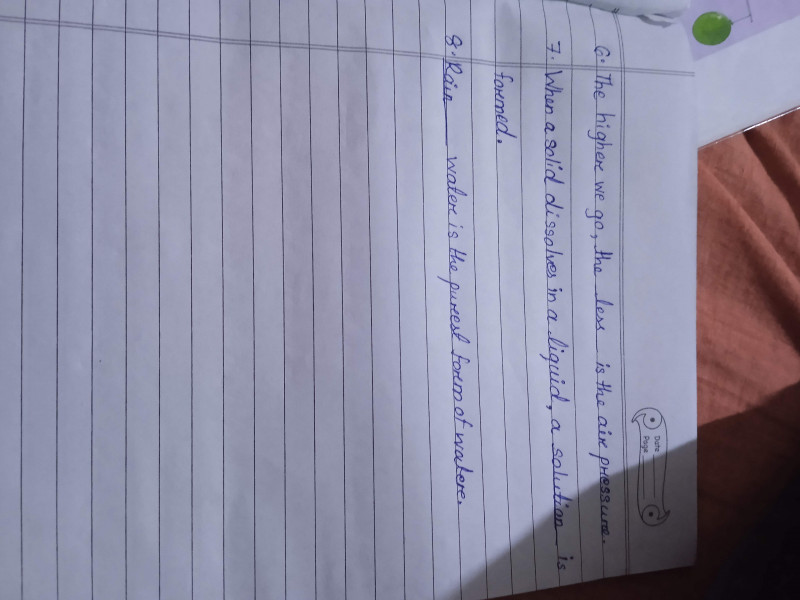 Date
Page
6. The higher we go, the less is the air pressure.
7. When a solid dissolves in a liquid, a solution is
formed.
8. Rain water is the purest form of water.